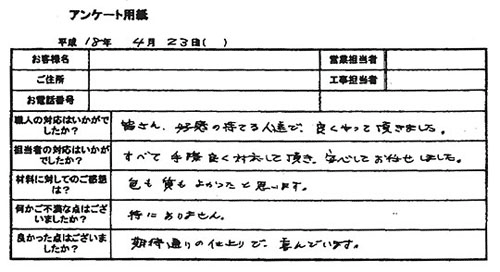 アンケート用紙
平成 18年 4月 23日( )
お客様名 営業担当者
ご住所 工事担当者
お電話番号
職人の対応はいかがでしたか?
皆さん、好感の持てる人達で、良くやって頂きました。
担当者の対応はいかがでしたか?
すべて手際良く対応して頂き、安心してお任せしました。
材料に対してのご感想は?
色も質もよかったと思います。
何かご不満な点はございましたか?
特にありません。
良かった点はございましたか?
期待通りの仕上りで、喜んでいます。